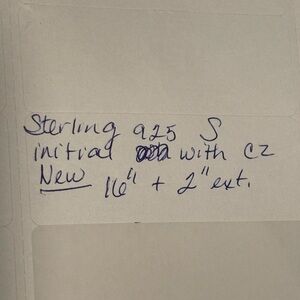 Sterling 925 S
initial with CZ
New 16" + 2" ext.